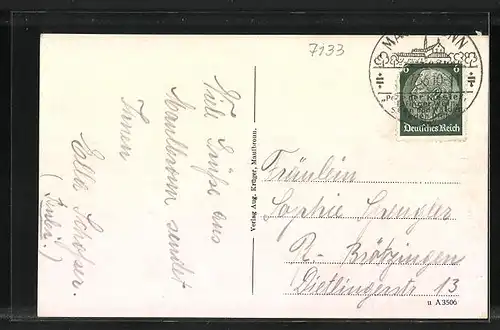 7133
MAULBRONN
6
Deutsches Reich
Viele Grüße aus
Maulbronn sendet
Ihnen
Ella Schoser.
Verlag Aug. Krüger, Maulbronn.
Fräulein
Sophie Spengler
Pf.-Brötzingen
Dietlingerstr 13
u A 3506